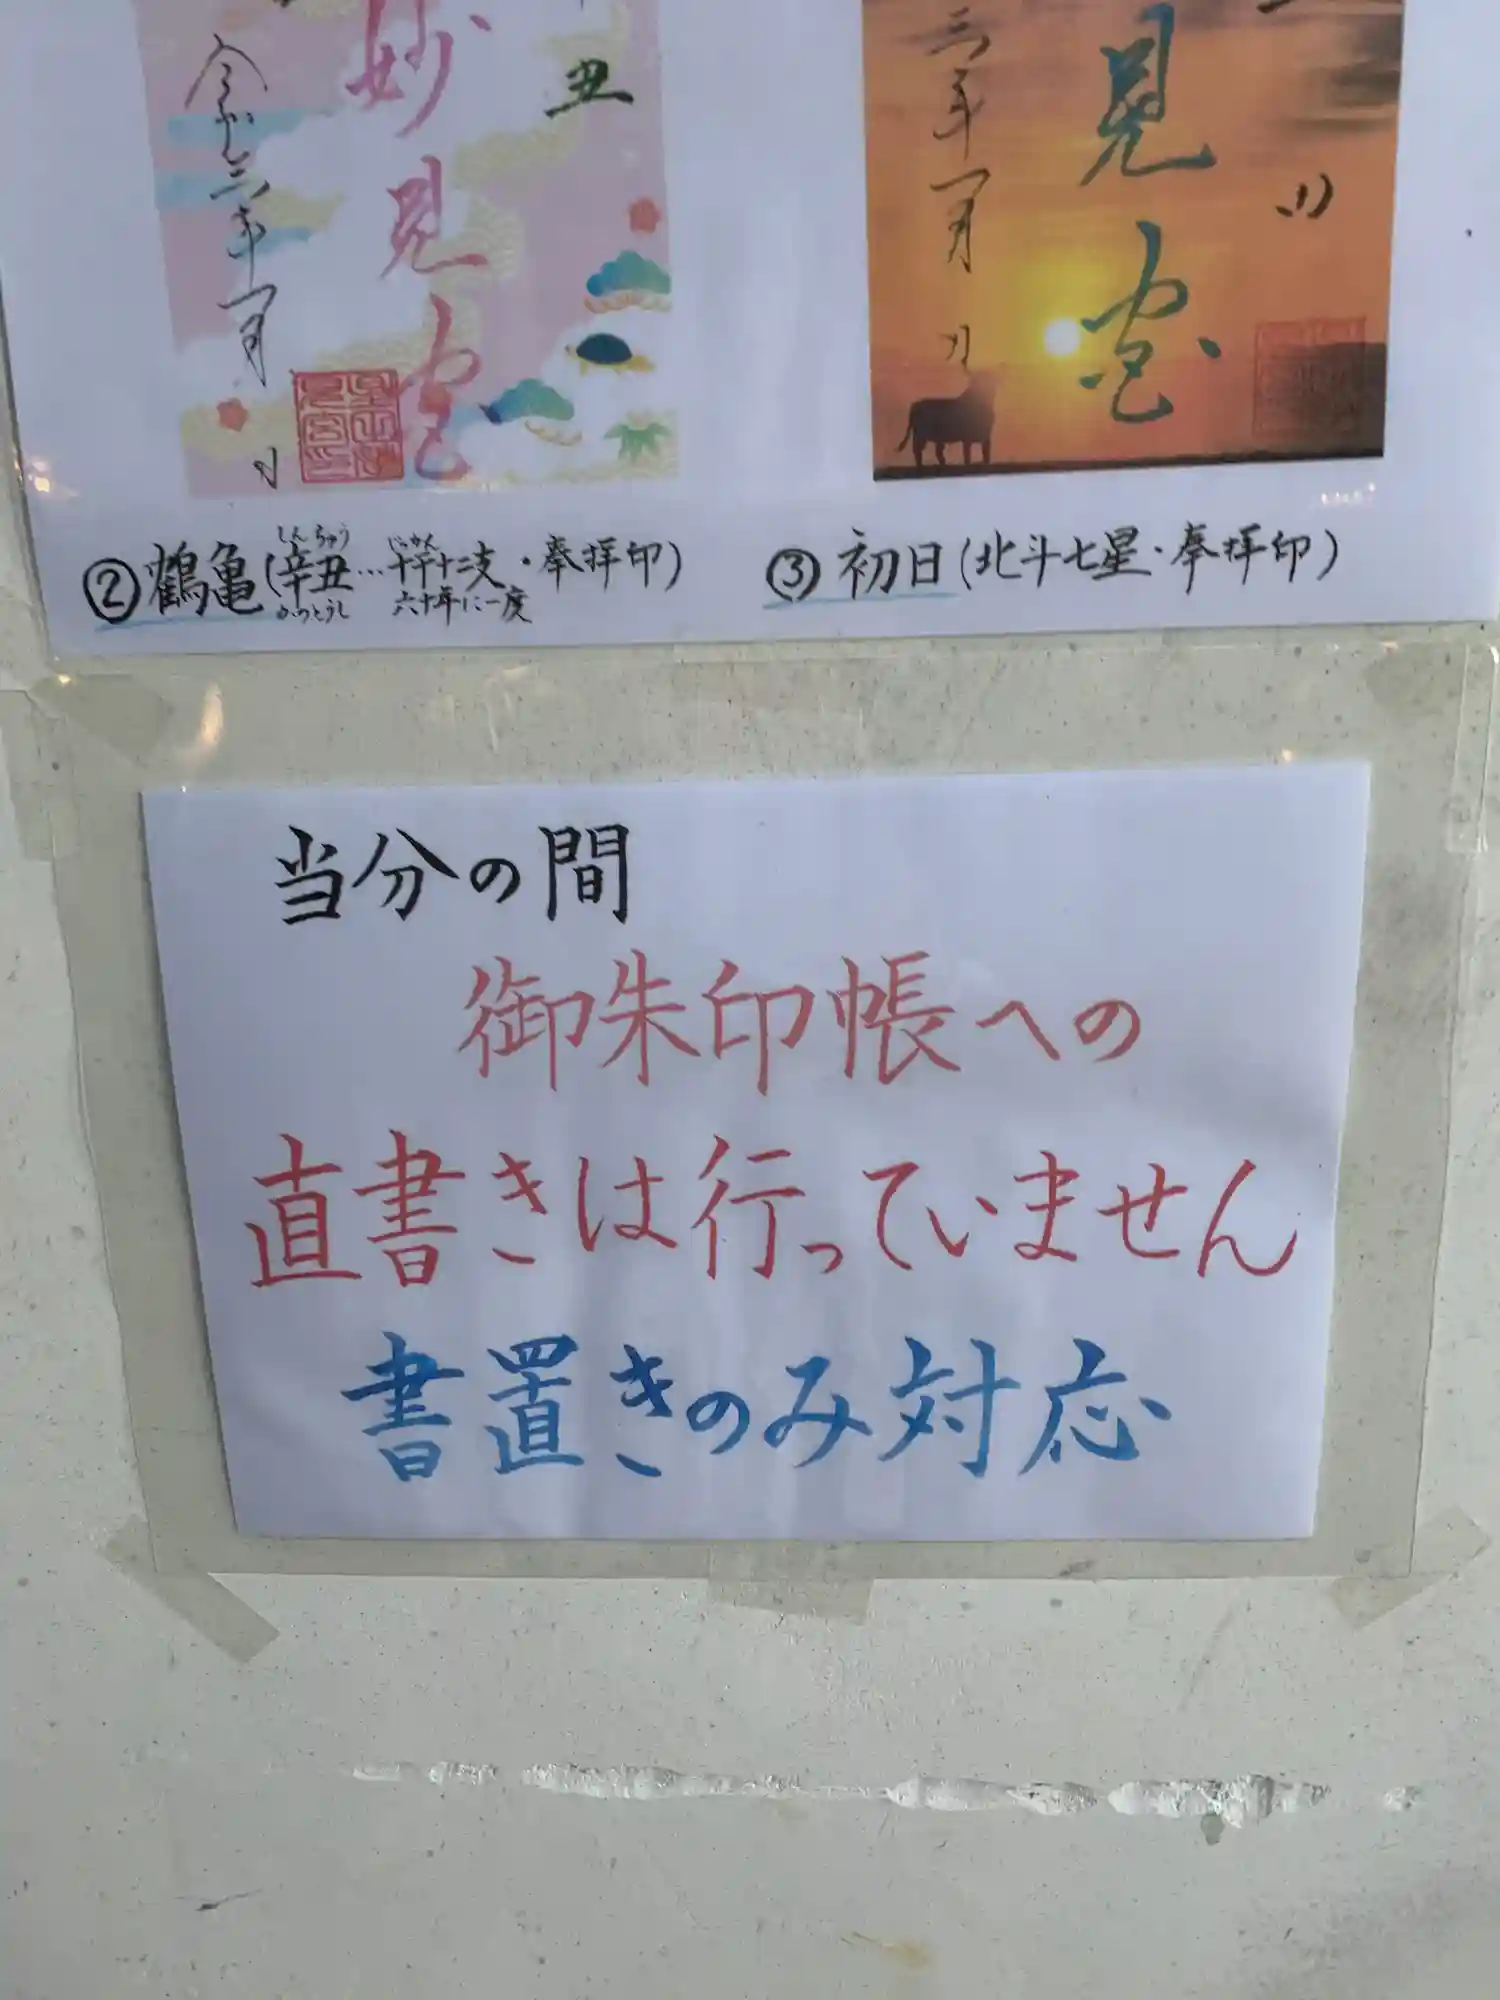 丑
妙見宮
令和三年一月 日
見宮
三年一月 日
②鶴亀(辛丑…十干十二支・奉拝印)
しんちゅう
じっかん
かのとうし
六十年に一度
③初日(北斗七星・奉拝印)
当分の間
御朱印帳への
直書きは行っていません
書置きのみ対応